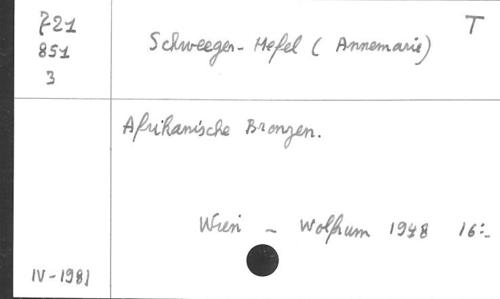 721
851
3
T
Schweeger-Hefel (Annemarie)
Afrikanische Bronzen.
Wien - Wolfrum 1948 16:-
IV-1981